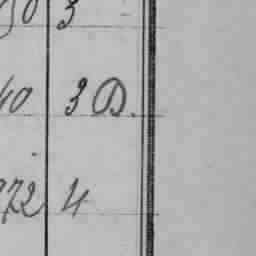 50 3
40 3 D.
772 4